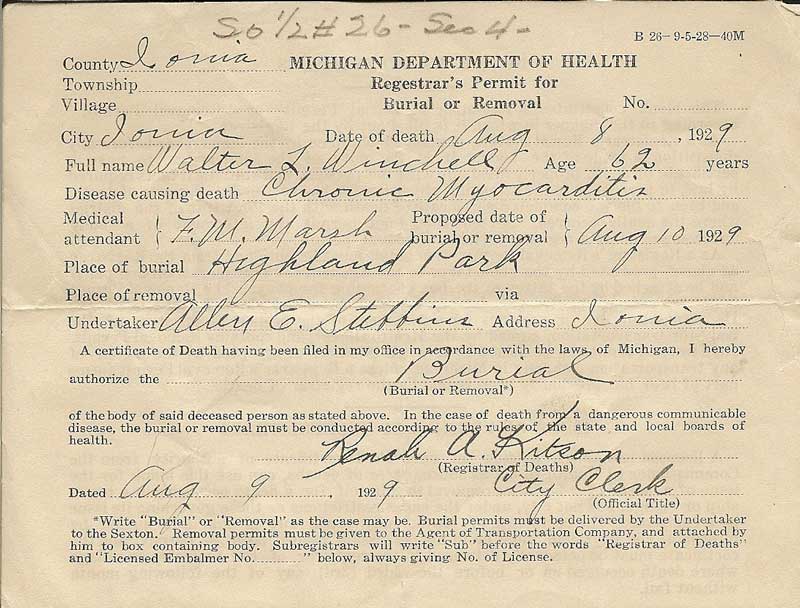 So 1/2 # 26 - Sec 4 -
B 26-9-5-28-40M
County Ionia MICHIGAN DEPARTMENT OF HEALTH
Township Regestrar's Permit for
Village Burial or Removal No.
City Ionia Date of death Aug 8, 1929
Full name Walter L. Winchell Age 62 years
Disease causing death Chronic Myocarditis
Medical attendant } F. M. Marsh Proposed date of burial or removal } Aug 10 1929
Place of burial Highland Park
Place of removal via
Undertaker Allen E. Stebbins Address Ionia
A certificate of Death having been filed in my office in accordance with the laws of Michigan, I hereby
authorize the Burial
(Burial or Removal*)
of the body of said deceased person as stated above. In the case of death from a dangerous communicable
disease, the burial or removal must be conducted according to the rules of the state and local boards of
health.
Renah A. Kitson
(Registrar of Deaths)
Dated Aug 9, 1929 City Clerk
(Official Title)
*Write "Burial" or "Removal" as the case may be. Burial permits must be delivered by the Undertaker
to the Sexton. Removal permits must be given to the Agent of Transportation Company, and attached by
him to box containing body. Subregistrars will write "Sub" before the words "Registrar of Deaths"
and "Licensed Embalmer No. " below, always giving No. of License.